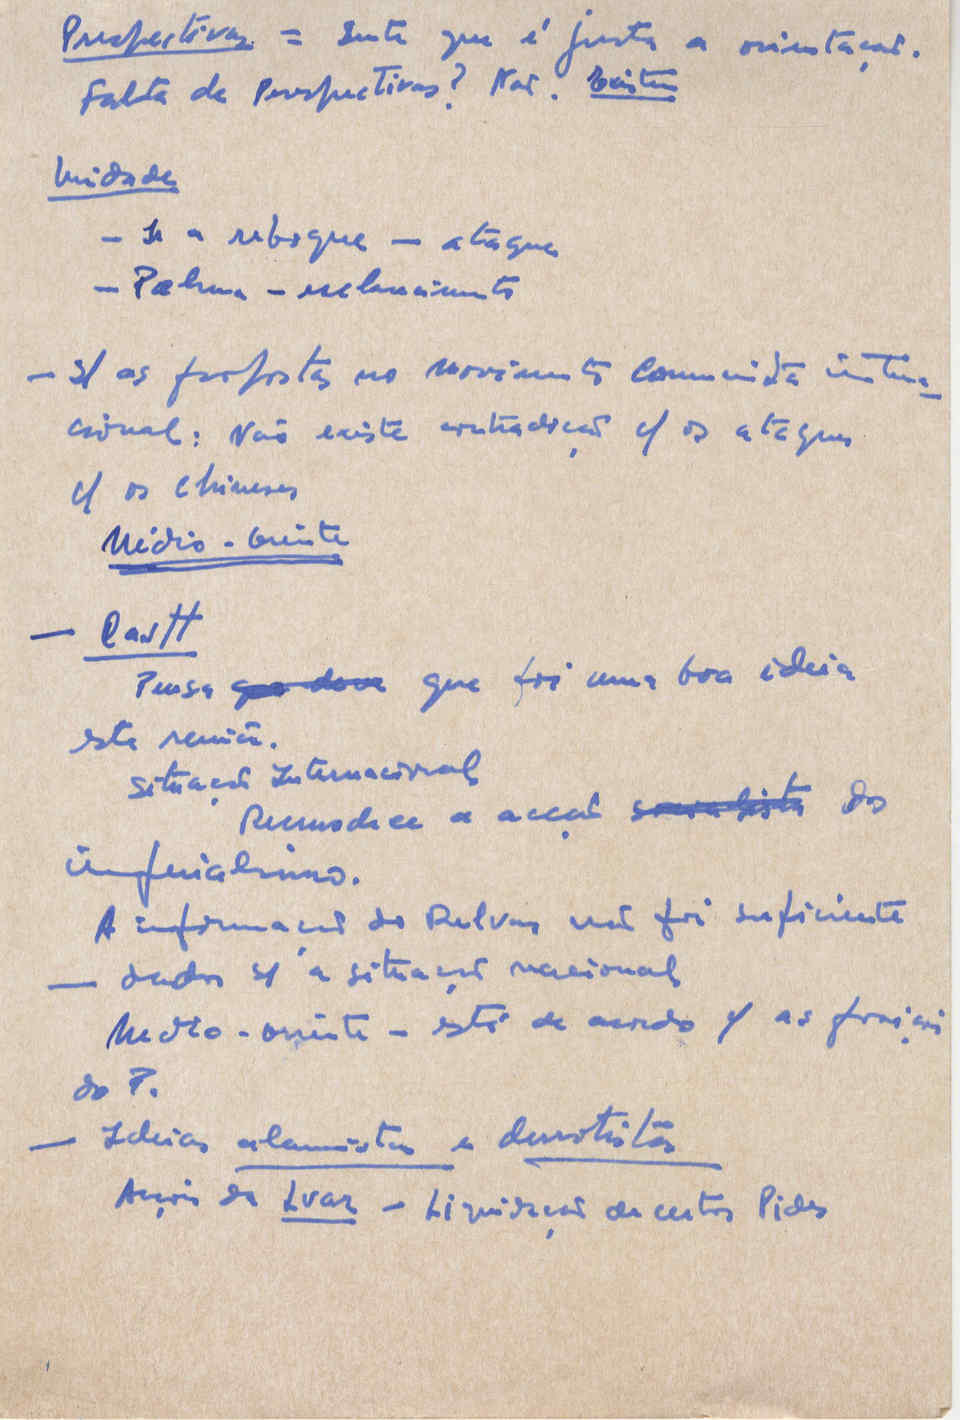 Perspectivas = Sente que é justa a orientação.
Falta de Perspectivas? Não. Existem
Unidade
- Ir a reboque - ataques
- Palma - esclarecimento
- S/ as propostas no movimento comunista interna_
cional: Não existe contradição c/ os ataques
c/ os chineses
Médio-Oriente
-
Pensa que foi uma boa ideia
esta reunião.
Situação Internacional
a acção do
imperialismo.
A informação do Relvas não foi suficiente
- dados s/ a situação nacional
Médio-oriente - está de acordo c/ as posições
do P.
- Ideias alarmistas e derrotistas
Acções da Luar - Liquidação de certos Pides